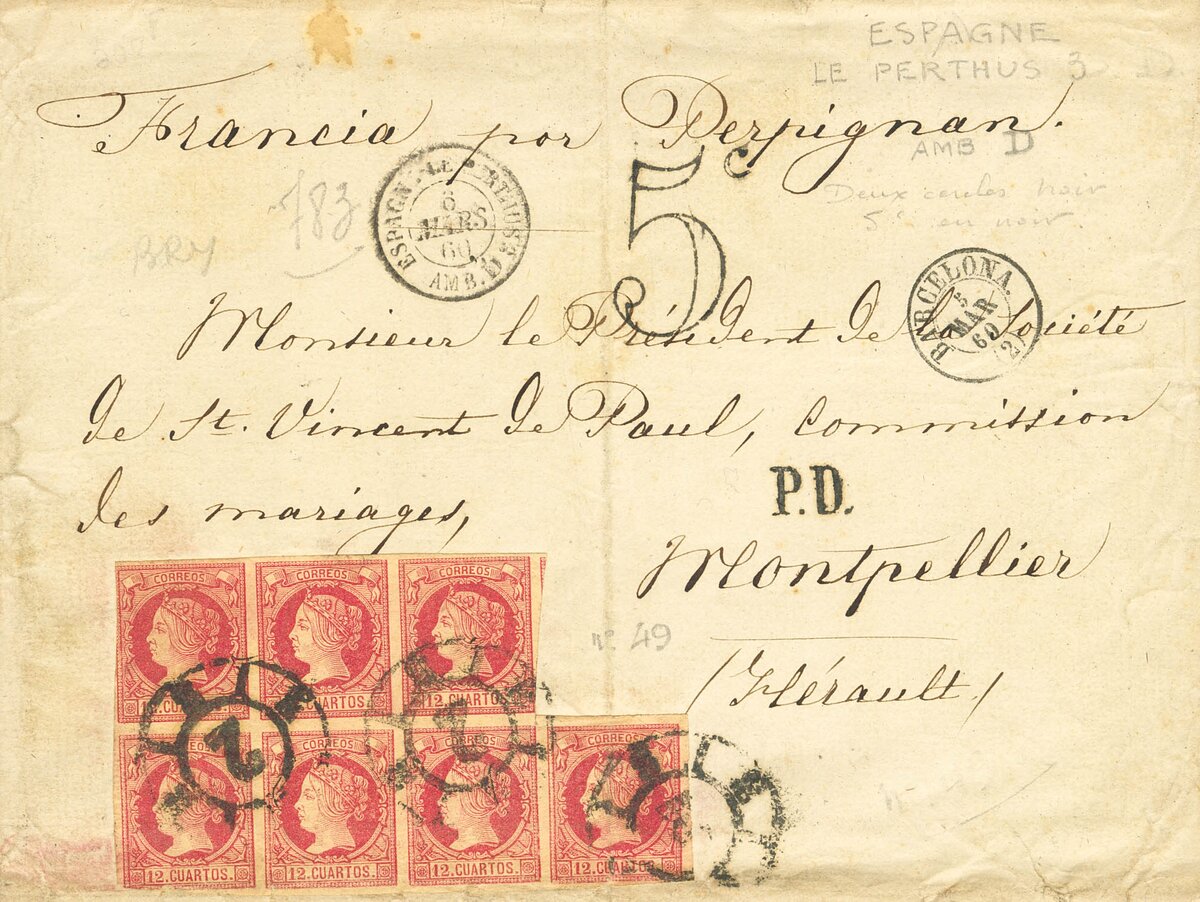 ESPAGNE
LE PERTHUS 3
Francia por Perpignan.
AMB D
Deux cercles noir
5c en noir
783
BRY
ESPAGNE LE PERTHUS 3
6
MARS
60
AMB. D
5c
BARCELONA.
5
MAR
60
(2)
Monsieur le Président de la Société
de St. Vincent de Paul, commission
des mariages,
P.D.
Montpellier
(Hérault)
n° 49
CORREOS CORREOS CORREOS
12. CUARTOS. 12. CUARTOS. 12. CUARTOS.
2
2
CORREOS CORREOS CORREOS CORREOS
12. CUARTOS. 12. CUARTOS. 12. CUARTOS. CUARTOS.